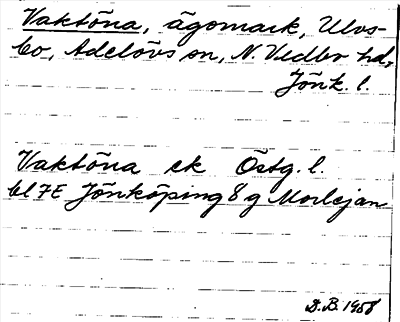 Vaktöna, ägomark, Ulvs-
bo, Adelövs sn, N. Vedbo hd,
Jönk. l.
Vaktöna ek Östg. l.
bl 7E Jönköping 8 g Morlejan
D.B. 1958